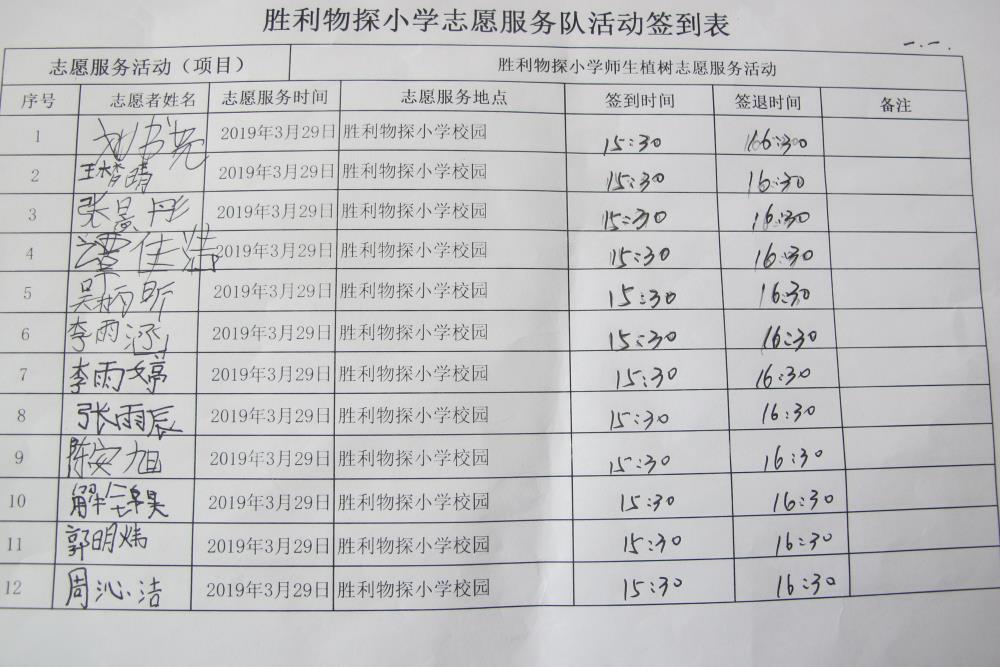 胜利物探小学志愿服务队活动签到表
一.一.
志愿服务活动（项目） 胜利物探小学师生植树志愿服务活动
序号 志愿者姓名 志愿服务时间 志愿服务地点 签到时间 签退时间 备注
1 刘书亮 2019年3月29日 胜利物探小学校园 15:30 16:30
2 王梦晴 2019年3月29日 胜利物探小学校园 15:30 16:30
3 张景彤 2019年3月29日 胜利物探小学校园 15:30 16:30
4 佳浩 2019年3月29日 胜利物探小学校园 15:30 16:30
5 吴炳昕 2019年3月29日 胜利物探小学校园 15:30 16:30
6 李雨涵 2019年3月29日 胜利物探小学校园 15:30 16:30
7 李雨婷 2019年3月29日 胜利物探小学校园 15:30 16:30
8 张雨辰 2019年3月29日 胜利物探小学校园 15:30 16:30
9 陈安旭 2019年3月29日 胜利物探小学校园 15:30 16:30
10 解 昊 2019年3月29日 胜利物探小学校园 15:30 16:30
11 郭明炜 2019年3月29日 胜利物探小学校园 15:30 16:30
12 周沁洁 2019年3月29日 胜利物探小学校园 15:30 16:30